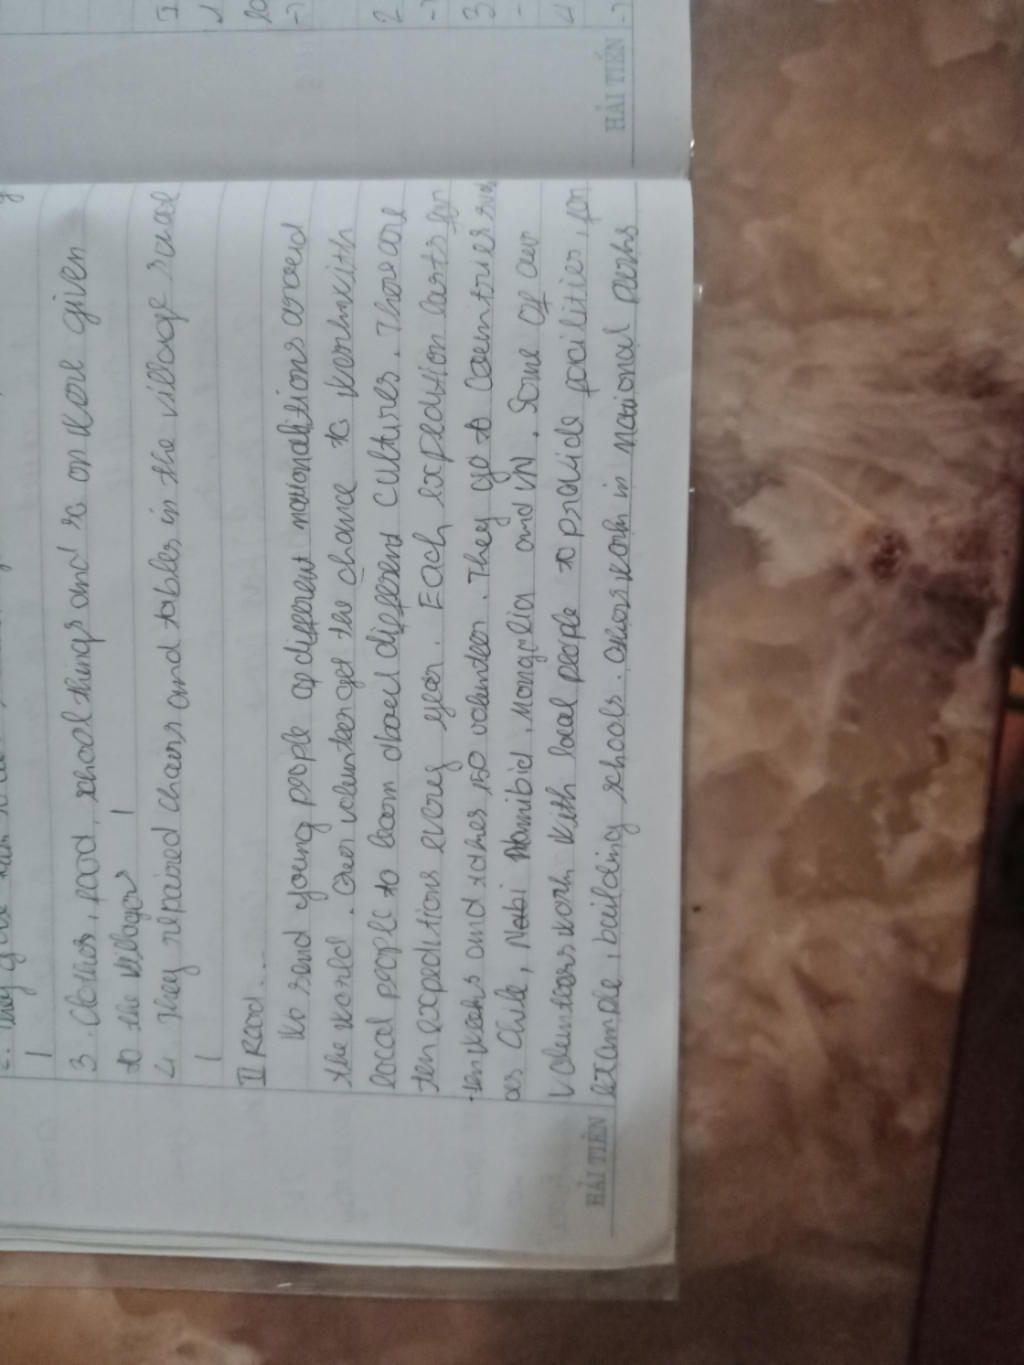 3. Clothes, food, school things and so on were given
to the villagers
4 They repaired chairs and tables in the village
II Read.
We send young people of different nationalitions around
the world. Our volunteer get the chance to work with
local people to learn about different cultures. There are
ten expeditions every year. Each expedition lasts for
ten weeks and takes 150 volunteer. They go to countries such
as Chile, Namibia, Mongolia and VN. Some of our
volunteers work with local people to provide facilities, for
example, building schools. Others work in national parks
HẢI TIẾN
HẢI TIẾN